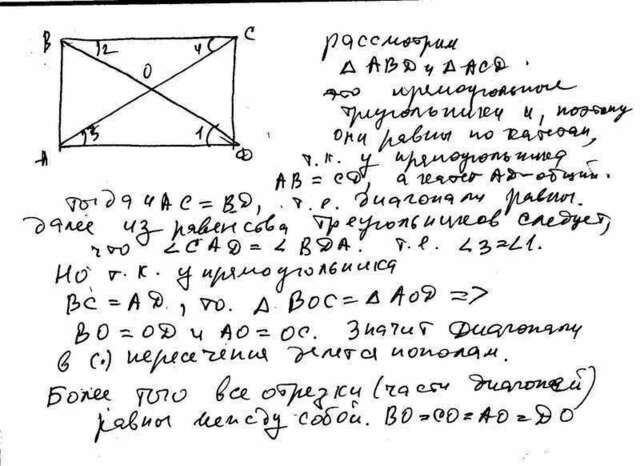 B
2
4
C
O
A
3
1
D
рассмотрим
△ ABD и △ ACD.
это прямоугольные
треугольники и, поэтому
они равны по катетам,
т.к. у прямоугольника
AB = CD, а катет AD – общий.
тогда и AC = BD, т.е. диагонали равны.
далее из равенства треугольников следует,
что ∠CAD = ∠BDA. т.е. ∠3=∠1.
Но т.к. у прямоугольника
BC = AD, то. △ BOC = △ AOD =>
BO = OD и AO = OC. Значит диагонали
в (.) пересечения делятся пополам.
Более того все отрезки (части диагоналей)
равны между собой. BO = CO = AO = DO